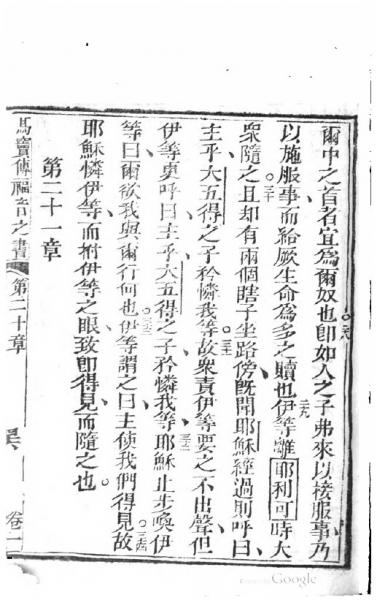 爾中之首者宜為爾奴也○二八即如人之子弗來以接服事乃
以施服事而給厥生命為多之贖也○二九伊等離耶利可時大
衆隨之○三十且却有兩個瞎子坐路傍旣聞耶穌經過則呼曰
主乎大五得之子矜憐我等○三一故衆責伊等要之不出聲但
伊等更呼曰主乎大五得之子矜憐我等○三二耶穌止步喚伊
等曰爾欲我與爾行何也○三三伊等謂之曰主使我們得見○三四故
耶穌憐伊等而拊伊等之眼致即得見而隨之也
第二十一章
馬竇傳福音之書 第二十章 卷一
Google